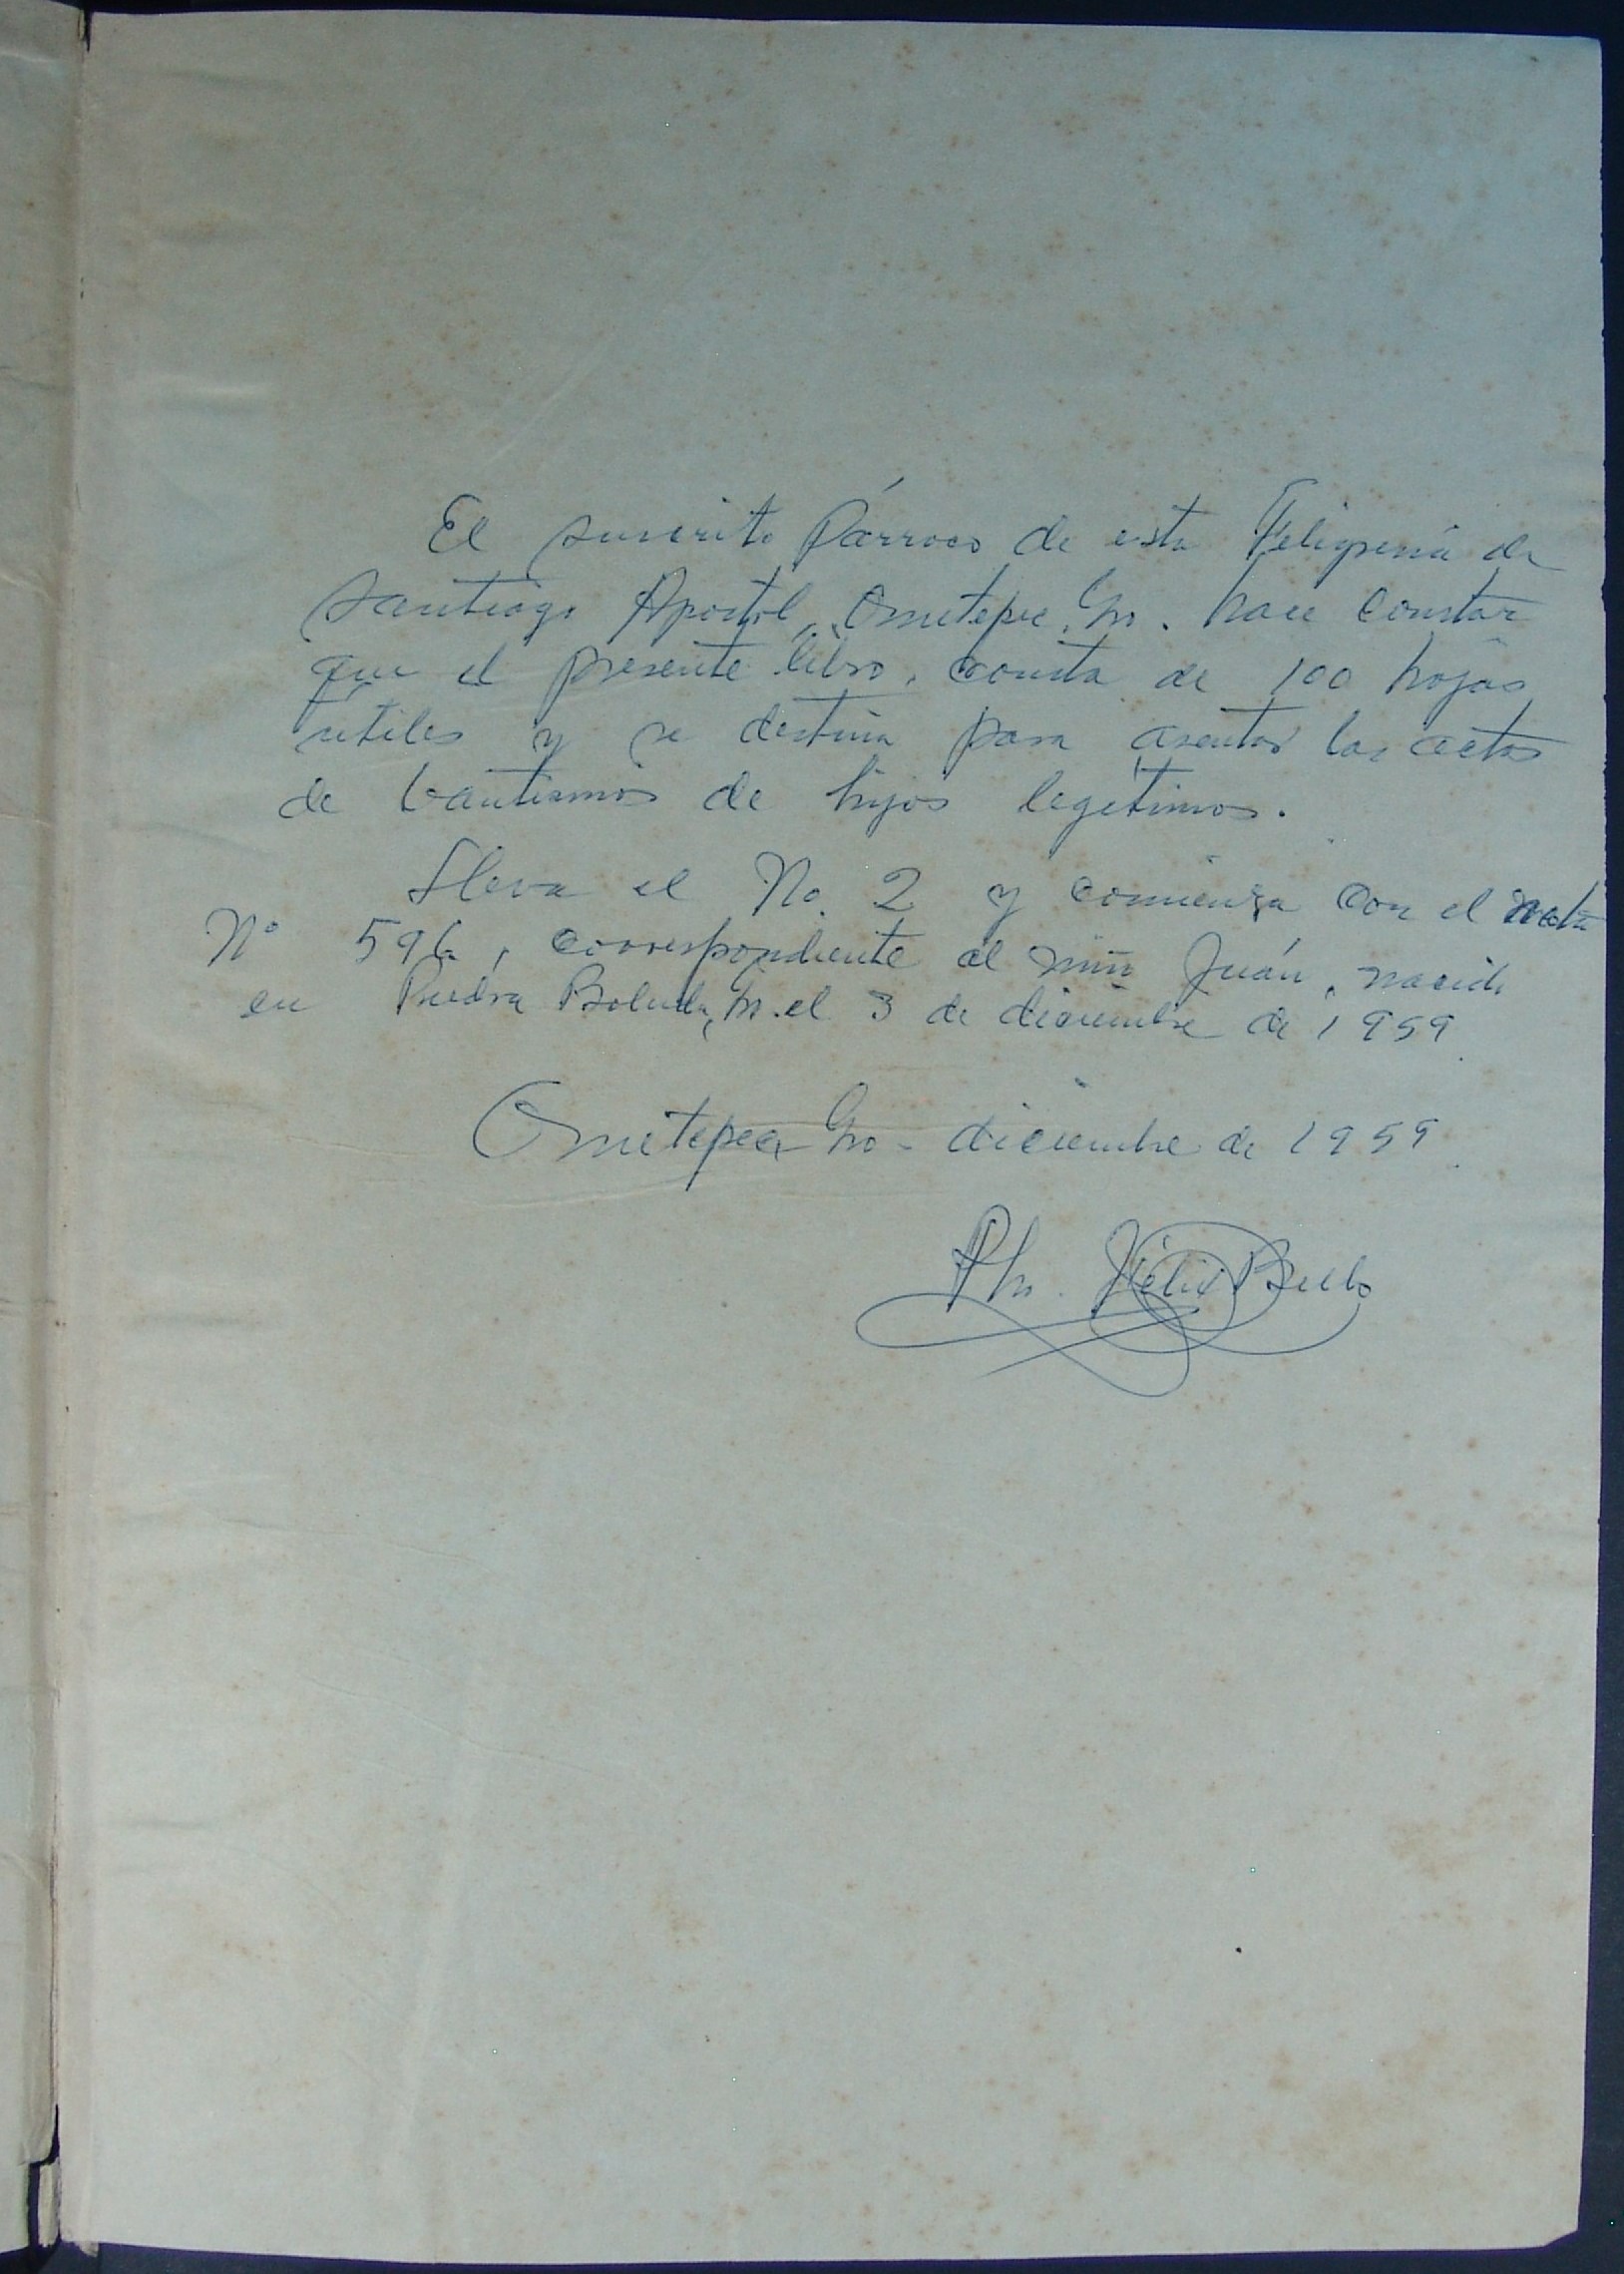 El suscrito Párroco de esta Feligresía de
Santiago Apostol, Ometepec, Gro. hace constar
que el presente libro, consta de 100 hojas
utiles y se destina para asentar las actas
de bautismos de hijos legitimos.
Lleva el No. 2 y comienza con el acta
Nº 596, correspondiente al niño Juán, nacido
en Piedra Boluda, Gro. el 3 de diciembre de 1959
Ometepec Gro - diciembre de 1959
Pbro. Félix Bello